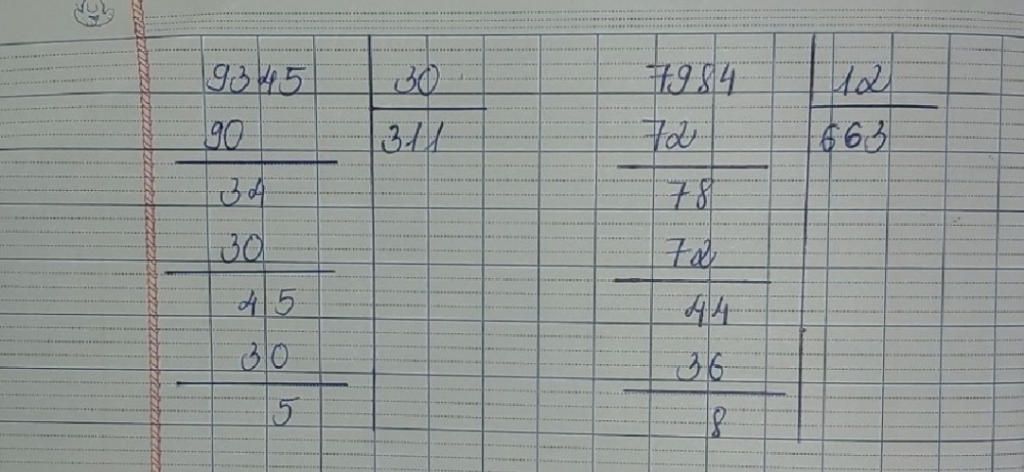 9345 30
90 311
34
30
45
30
5
7984 12
72 663
78
72
44
36
8